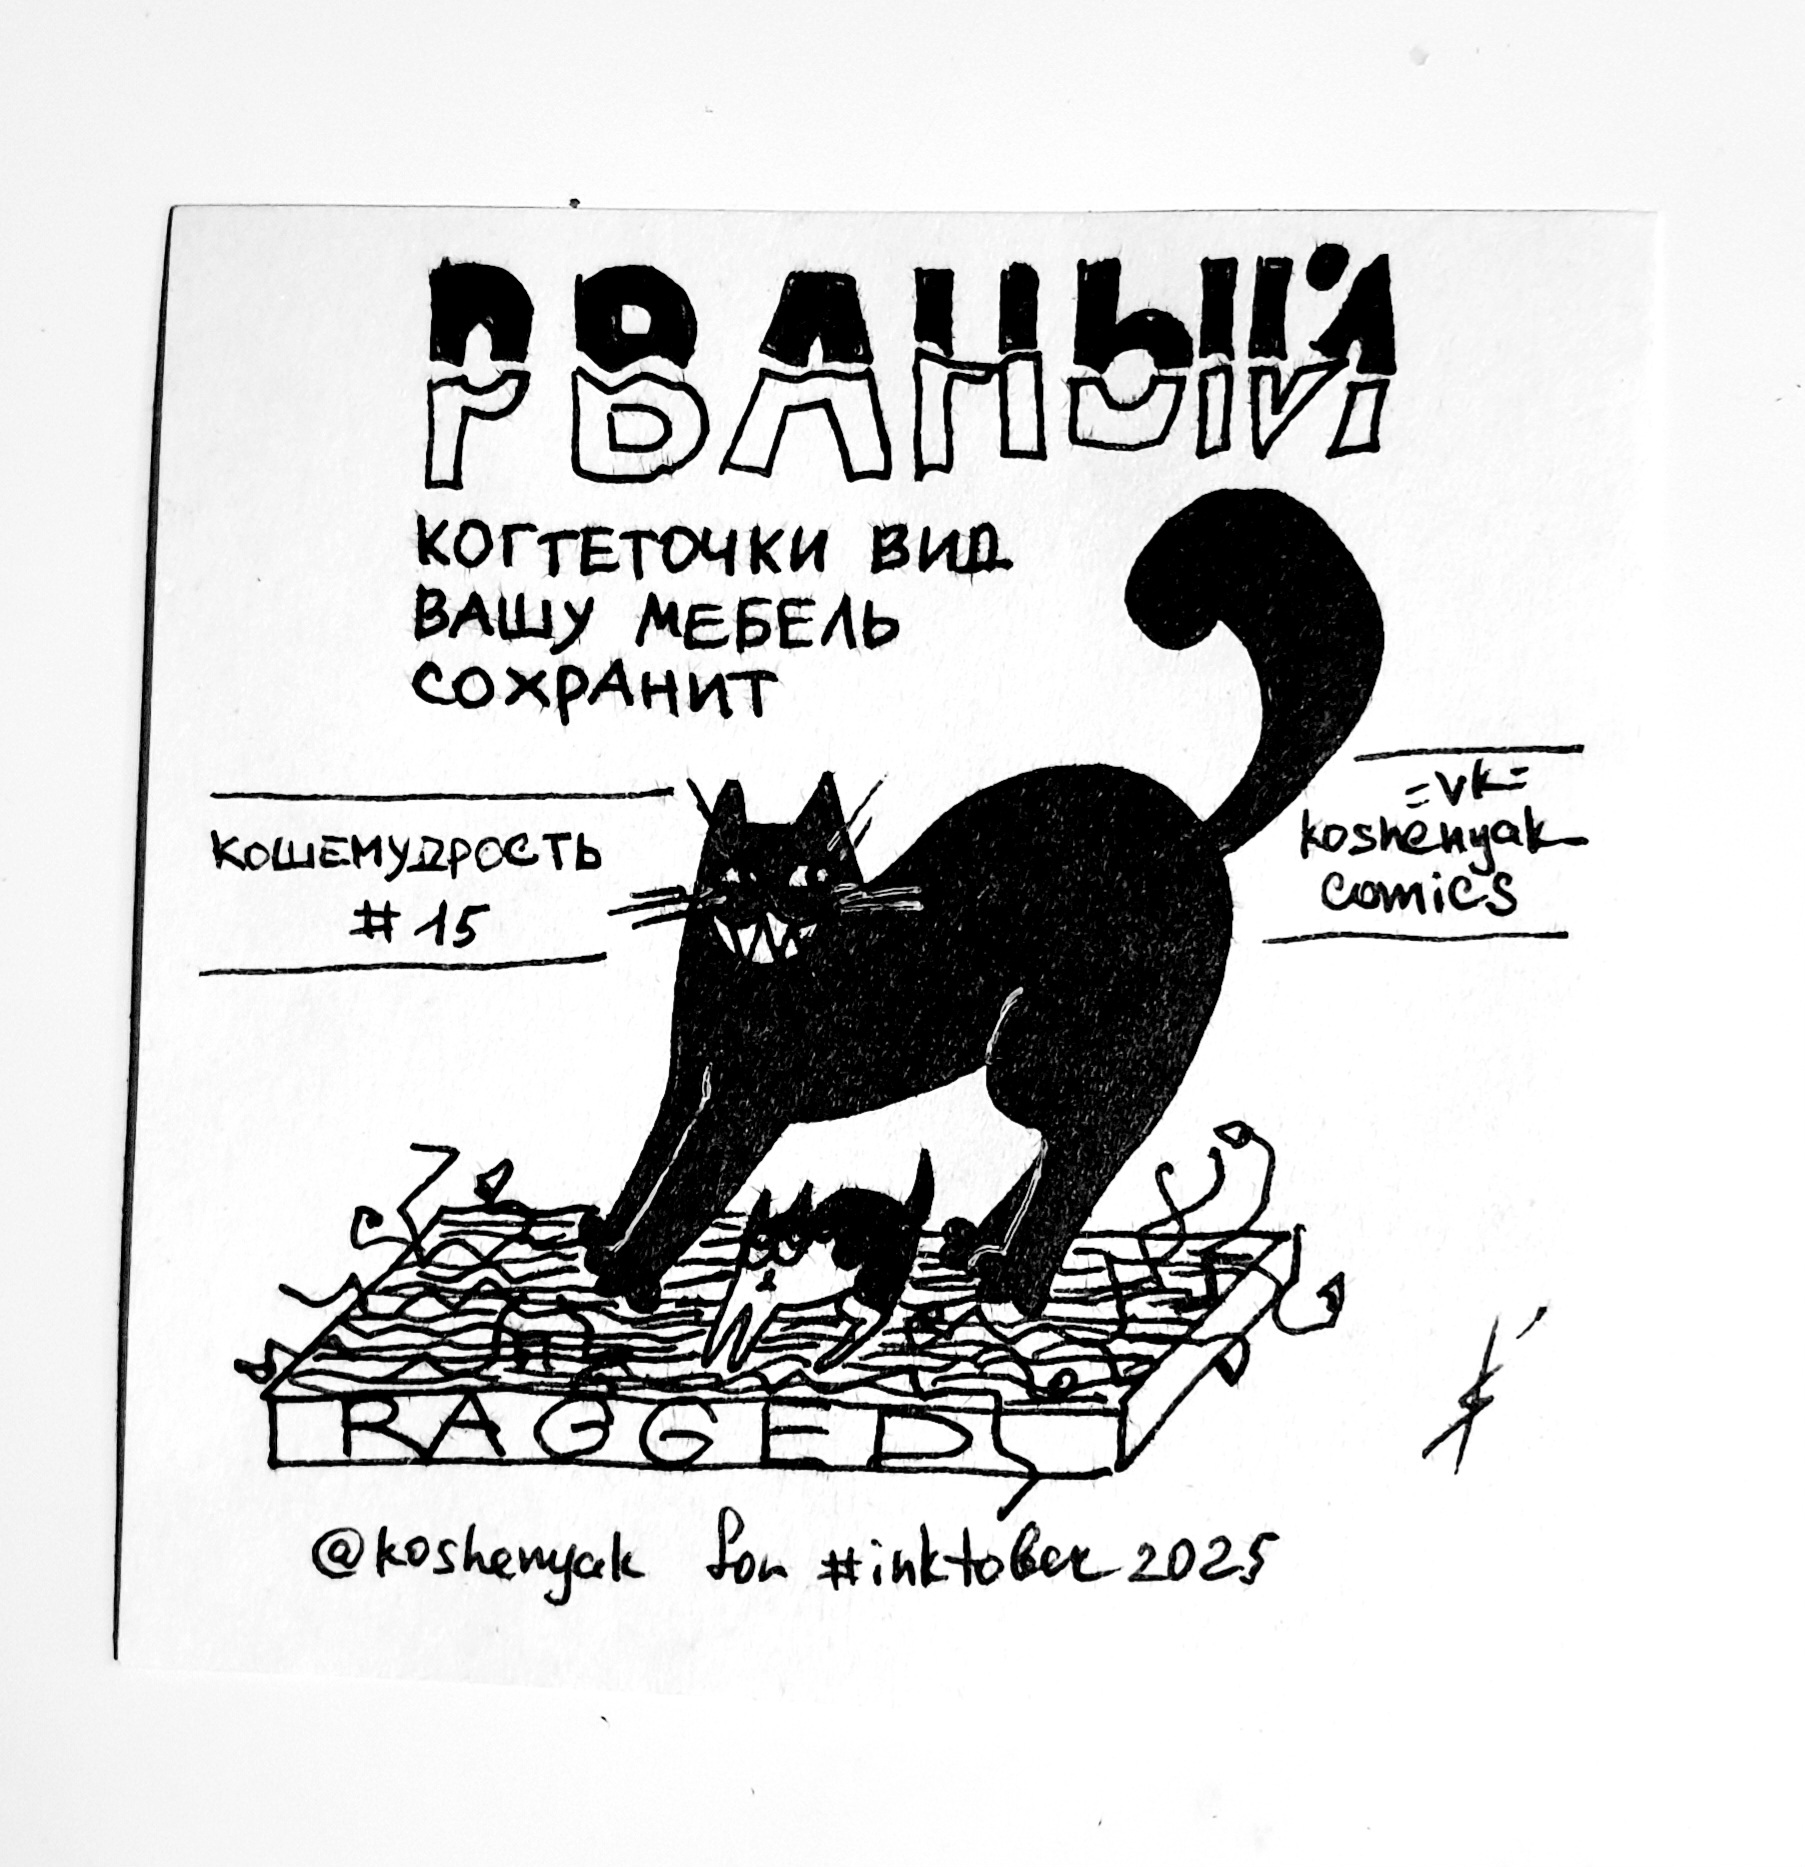 РВАНЫЙ
КОГТЕТОЧКИ ВИД
ВАШУ МЕБЕЛЬ
СОХРАНИТ
КОШЕМУДРОСТЬ
# 15
=VK=
koshenyak
comics
RAGGED
@koshenyak for #inktober 2025